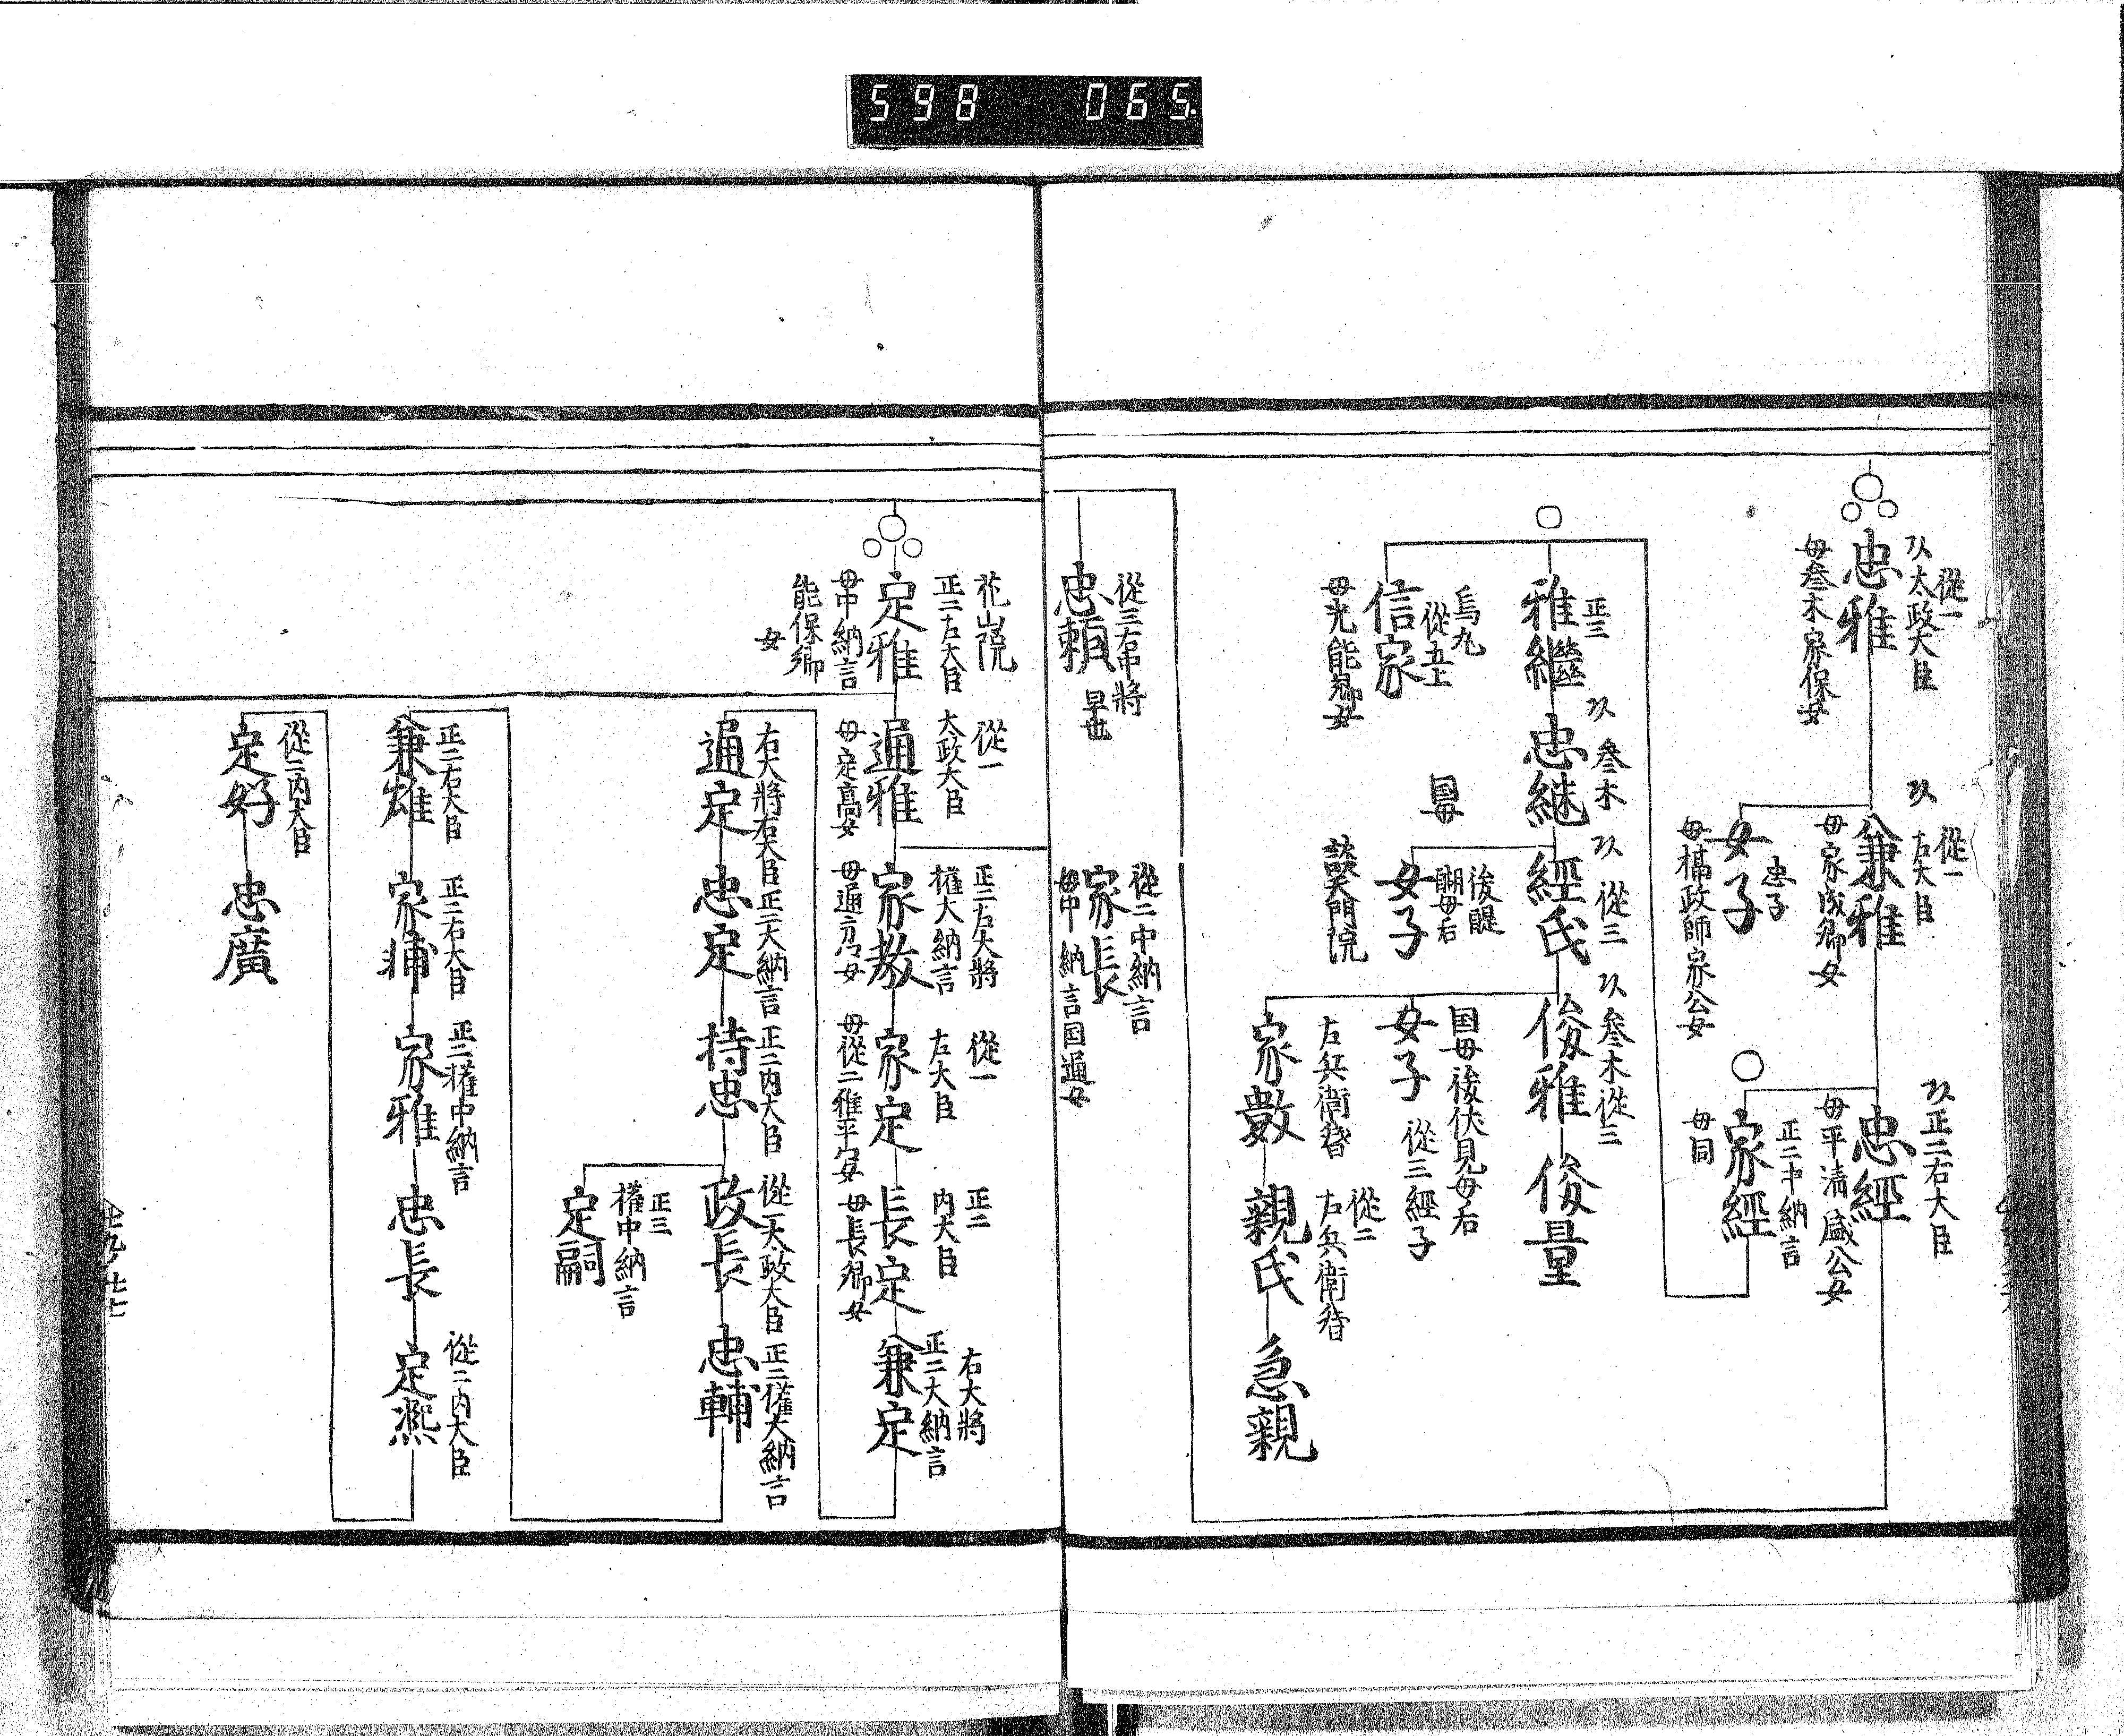 598 065.
從一
太政大臣
忠雅
母叄木家保女
從一
左大臣
兼雅
母家成卿女
忠子
女子
母楀政師家公女
正二右大臣
忠經
母平清盛公女
正二中納言
家經
母同
正三
雅繼
叄木
忠継
從三
經氏
叄木從三
俊雅
俊量
烏丸
從五上
信家
母光能卿女
国母
後醍
醐母后
女子
談天門院
国母後伏見母后
女子
從三經子
左兵衛督
家數
從二
左兵衛督
親氏
急親
從三右中將
忠頼
早世
從二中納言
家長
母中納言国通女
花山院
正二左大臣
定雅
母中納言
能保卿
女
從一
大政大臣
通雅
母定高女
正二左大將
權大納言
家教
從一
左大臣
家定
母從二雅平女
正二
内大臣
長定
母長卿女
右大將
正二大納言
兼定
右大將右大臣
通定
正二大納言
忠定
正二内大臣
持忠
從一大政大臣
政長
正二權大納言
忠輔
正三
權中納言
定嗣
正二右大臣
兼雄
正二右大臣
家輔
正二權中納言
家雅
忠長
從二内大臣
定熈
從二内大臣
定好
忠廣